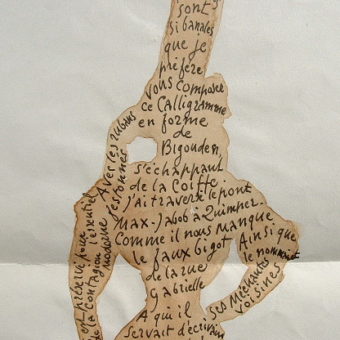 sont
si banales
que je
préfère
vous composer
ce Calligramme
en forme
de
Bigouden
s'échappant
de la Coiffe
j'ai traversé le pont
Max-Jacob à Quimper.
Comme il nous manque
le faux bigot
de la rue
Gabrielle
A qui il
servait d'écrivain
Avec les rubans
est préservé pour
de la contagion l'essentiel
moderne
Ainsi que
le nommaient
ses Méchantes
voisines